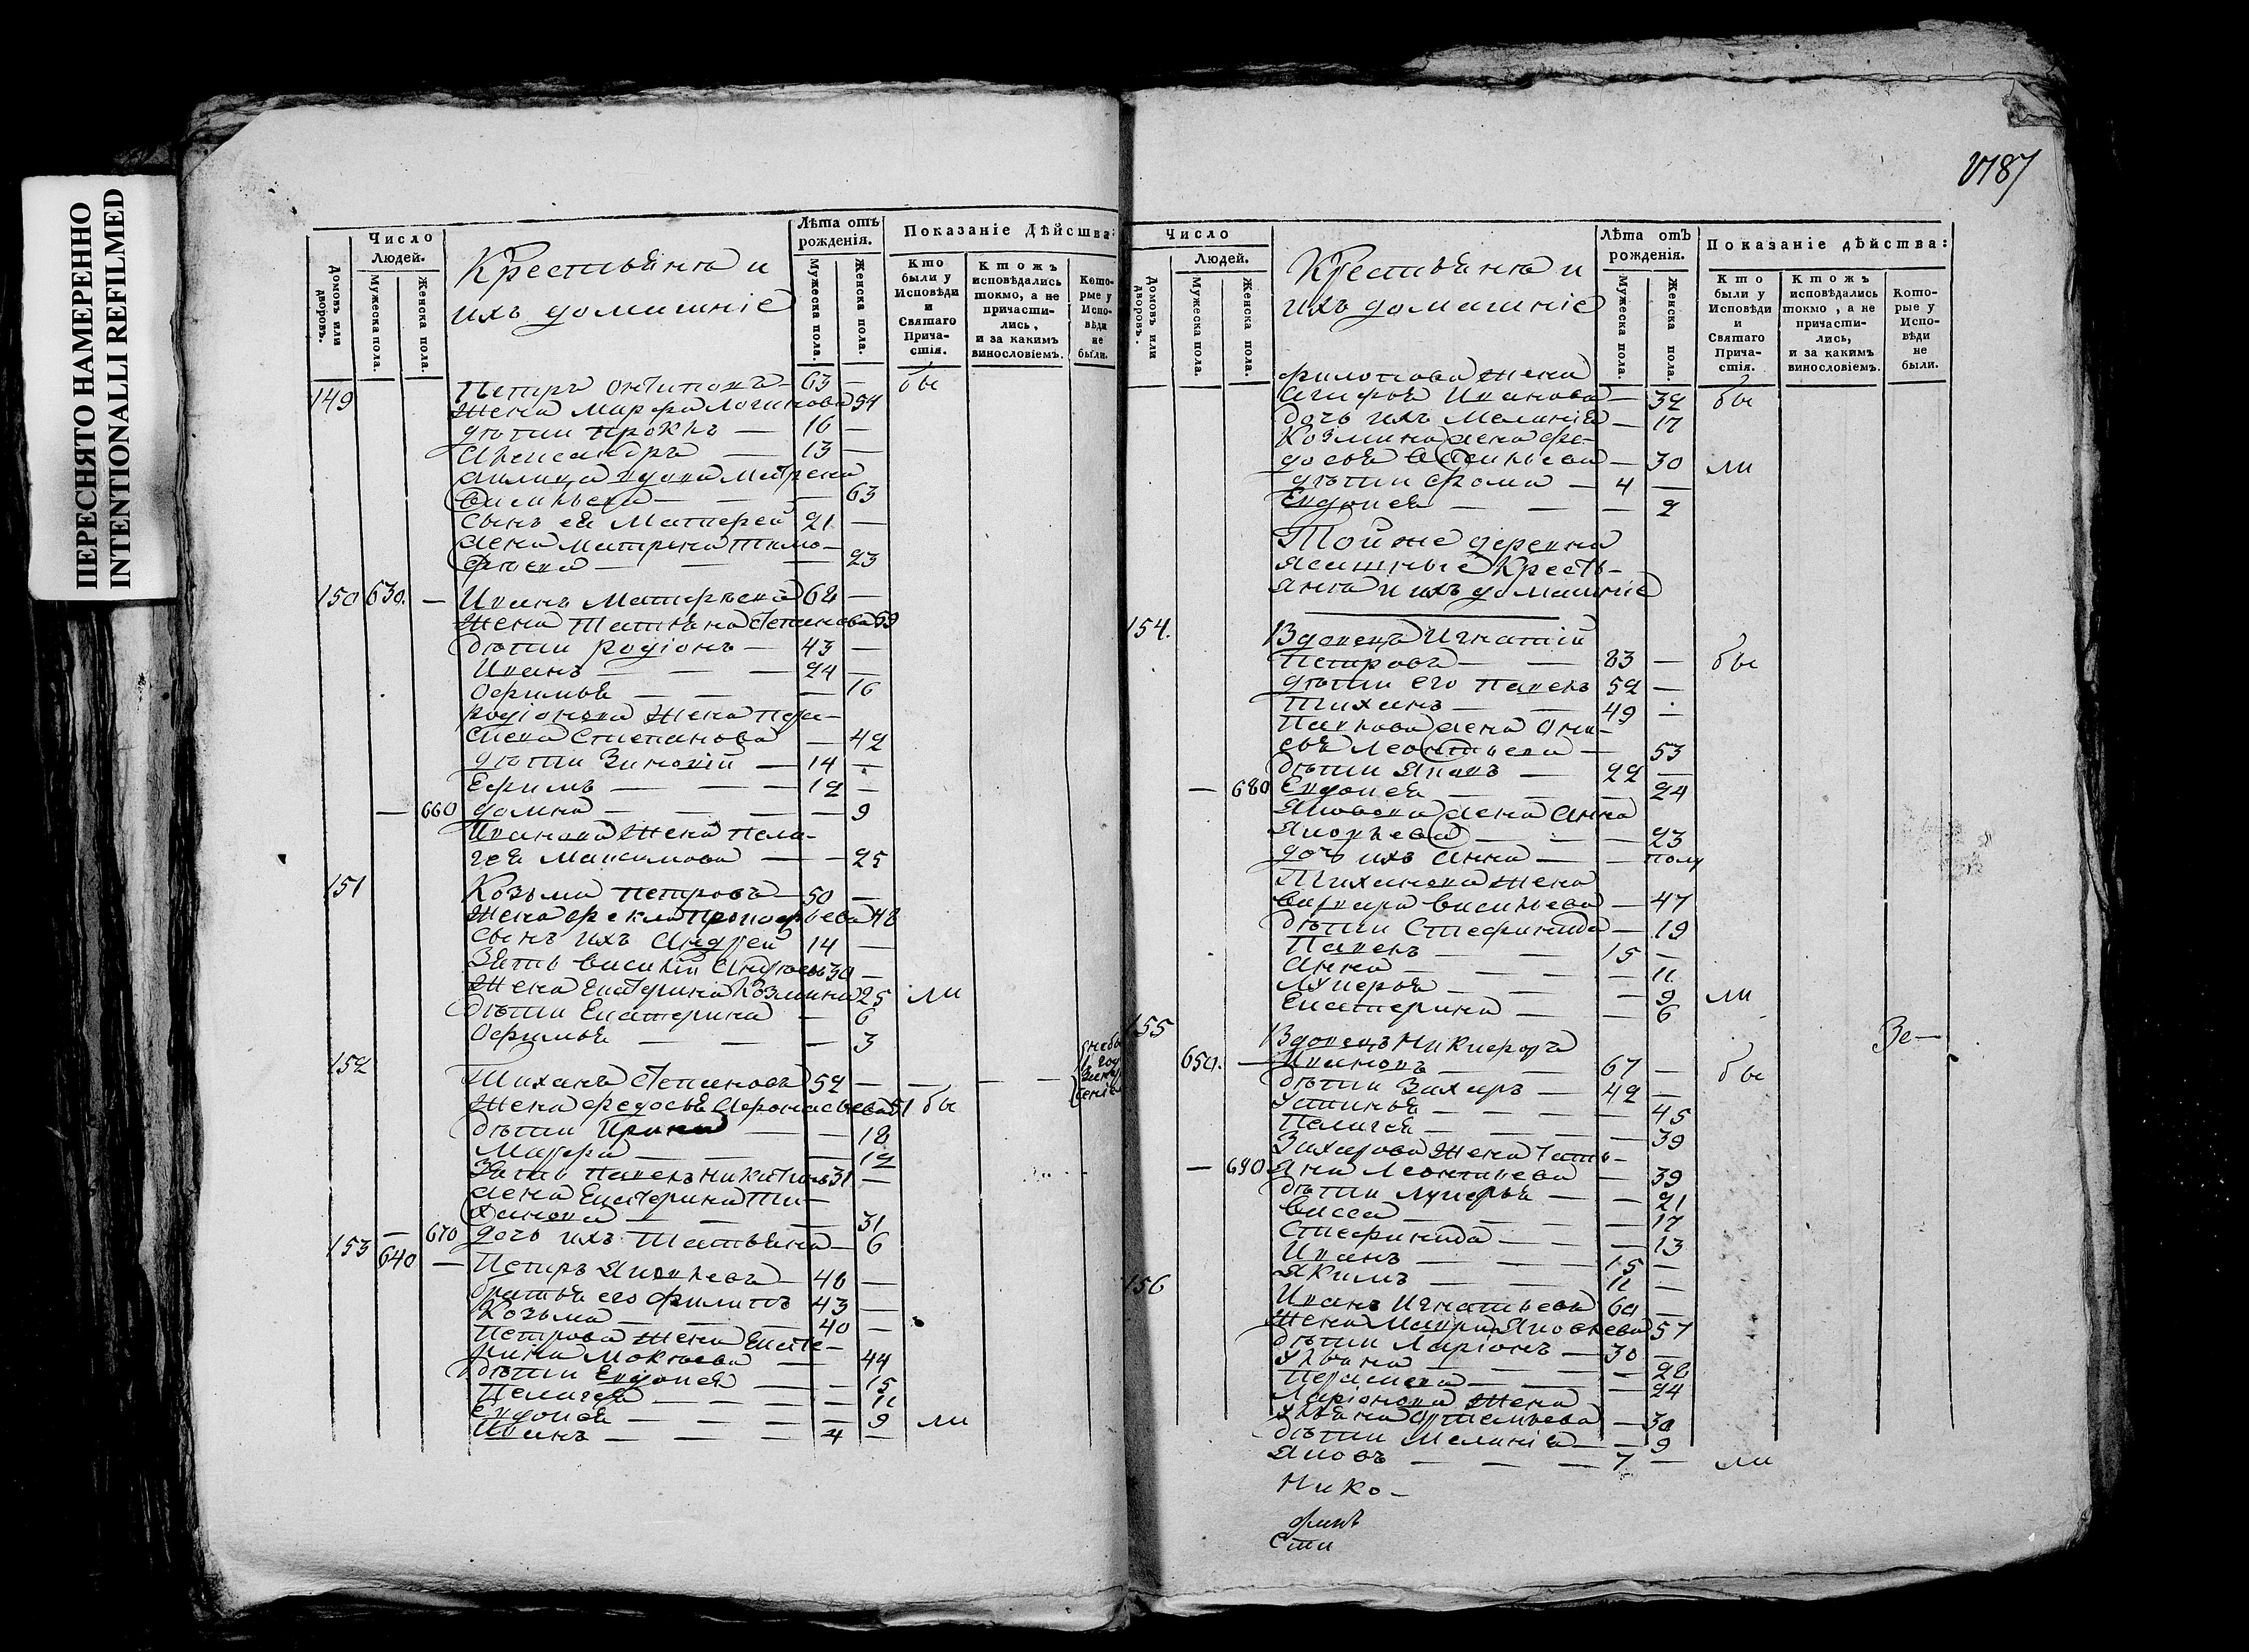 ПЕРЕСНЯТО НАМЕРЕННО
INTENTIONALLI REFILMED
Число
Людей.
Домовъ или дворовъ.
Мужеска пола.
Женска пола.
Крестьяня и
ихъ домашніе
Лѣта отъ рожденія.
Мужеска пола.
Женска пола.
Показаніе Дѣйства:
Кто были у Исповѣди и Святаго Прича-стія.
Ктожъ исповѣдались токмо, а не причасти-лись, и за какимъ винословіемъ.
Кото-рые у Испо-вѣди не были.
149 Петръ Онтиповъ — 63 — бы
Жена Марфа Логинова 54
дѣти Прокъ — 16 —
Александръ — 13 —
вдова Матрена
Васильева — — 63
Сынъ ея Матфей 21 —
Жена Матрена Тимо-
фѣева — — 23
150 630. — Иванъ Матфѣевъ 68 —
Жена Татьяна Степанова 59
дѣти Родіонъ — 43 —
Иванъ — — 24 —
Офимья — — — 16
Родіонова Жена Пра-
скева Степанова — 42
дѣти Зиновій — 14 —
Ефимъ — — — 12 —
— 660 домна — — — 9
Иванова Жена Пела-
гея Максимова — — 25
151 Козьма Петровъ — 50 —
Жена Фекла Прокофьева 48
Сынъ ихъ Андрей 14 —
Зять Василій Андреевъ 30 —
Жена Екатерина Козмина 25 ли
дѣти Екатерина — 6
Офимья — — — 3
152 Тиханъ Степановъ 52 — — — —
Жена Федосья Афонасьева 51 бы
дѣти Ирина — — 18
Марфа — — — 12
Зять Павелъ Никитинъ 31 —
Жена Екатерина Ти-
ханова — — — 31
— 670 дочь ихъ Татьяна — 6
153 640 — Петръ Яковлевъ — 46 —
братья его Филипъ 43 —
Козьма — — — 40 —
Петрова Жена Екате-
рина Мокѣева — 44
дѣти Евдокея — — 15
Пелагея — — — — 11
Евдокея — — — — 9 ли
Иванъ — — — 4 —
187
Число
Людей.
Домовъ или дворовъ.
Мужеска пола.
Женска пола.
Крестьяня и
ихъ домашніе
Лѣта отъ рожденія.
Мужеска пола.
Женска пола.
Показаніе дѣйства:
Кто были у Исповѣди и Святаго Прича-стія.
Ктожъ исповѣдались токмо, а не причасти-лись, и за какимъ винословіемъ.
Кото-рые у Испо-вѣди не были.
Филипова Жена
Агафья Иванова — 39 бы
дочь ихъ Меланія — 17
Козмина жена Фе-
досья Васильева — 30 ли
дѣти Фома — 4 —
Евдокея — — — 2
Той же деревни
Ясашные Кресть-
яня и ихъ домашніе
154. Вдовецъ Игнатій
Петровъ — — 83 — бы
дѣти его Павелъ 52 —
Тиханъ — — 49 —
Павлова жена Ани-
сья Леонтьева — 53
дѣти Яковъ — 22 —
— 680 Евдокея — — — 24
Яковова жена Анна
Яковлева — — — 23
дочь ихъ Анна — — полу
Тиханова Жена
Варвара Васильева — 47
дѣти Стефанида — 19
Павелъ — — 15 —
Анна — — — — 11
Лукерья — — — 9 ли
Екатерина — — — 6
155 Вдовецъ Никифоръ Зе —
650. — Ивановъ — — 67 — бы
дѣти Захаръ — 42 —
Устинья — — — 45
Пелагея — — — 39
Захарова Жена Тать-
— 690 яна Леонтьева — 39
дѣти Лукерья — — 21
Васса — — — — 17
Стефанида — — — 13
Иванъ — — — 15 —
Якимъ — — — 11 —
156 Иванъ Игнатьевъ 60 —
Жена Мавра Яковлева 57
дѣти Ларіонъ — 30 —
Ульяна — — — 28
Праскева — — — 24
Ларіонова Жена
Ульяна Артемьева — 30
дѣти Меланія — — 9
Яковъ — — — 7 — ли
Нико-
Сти